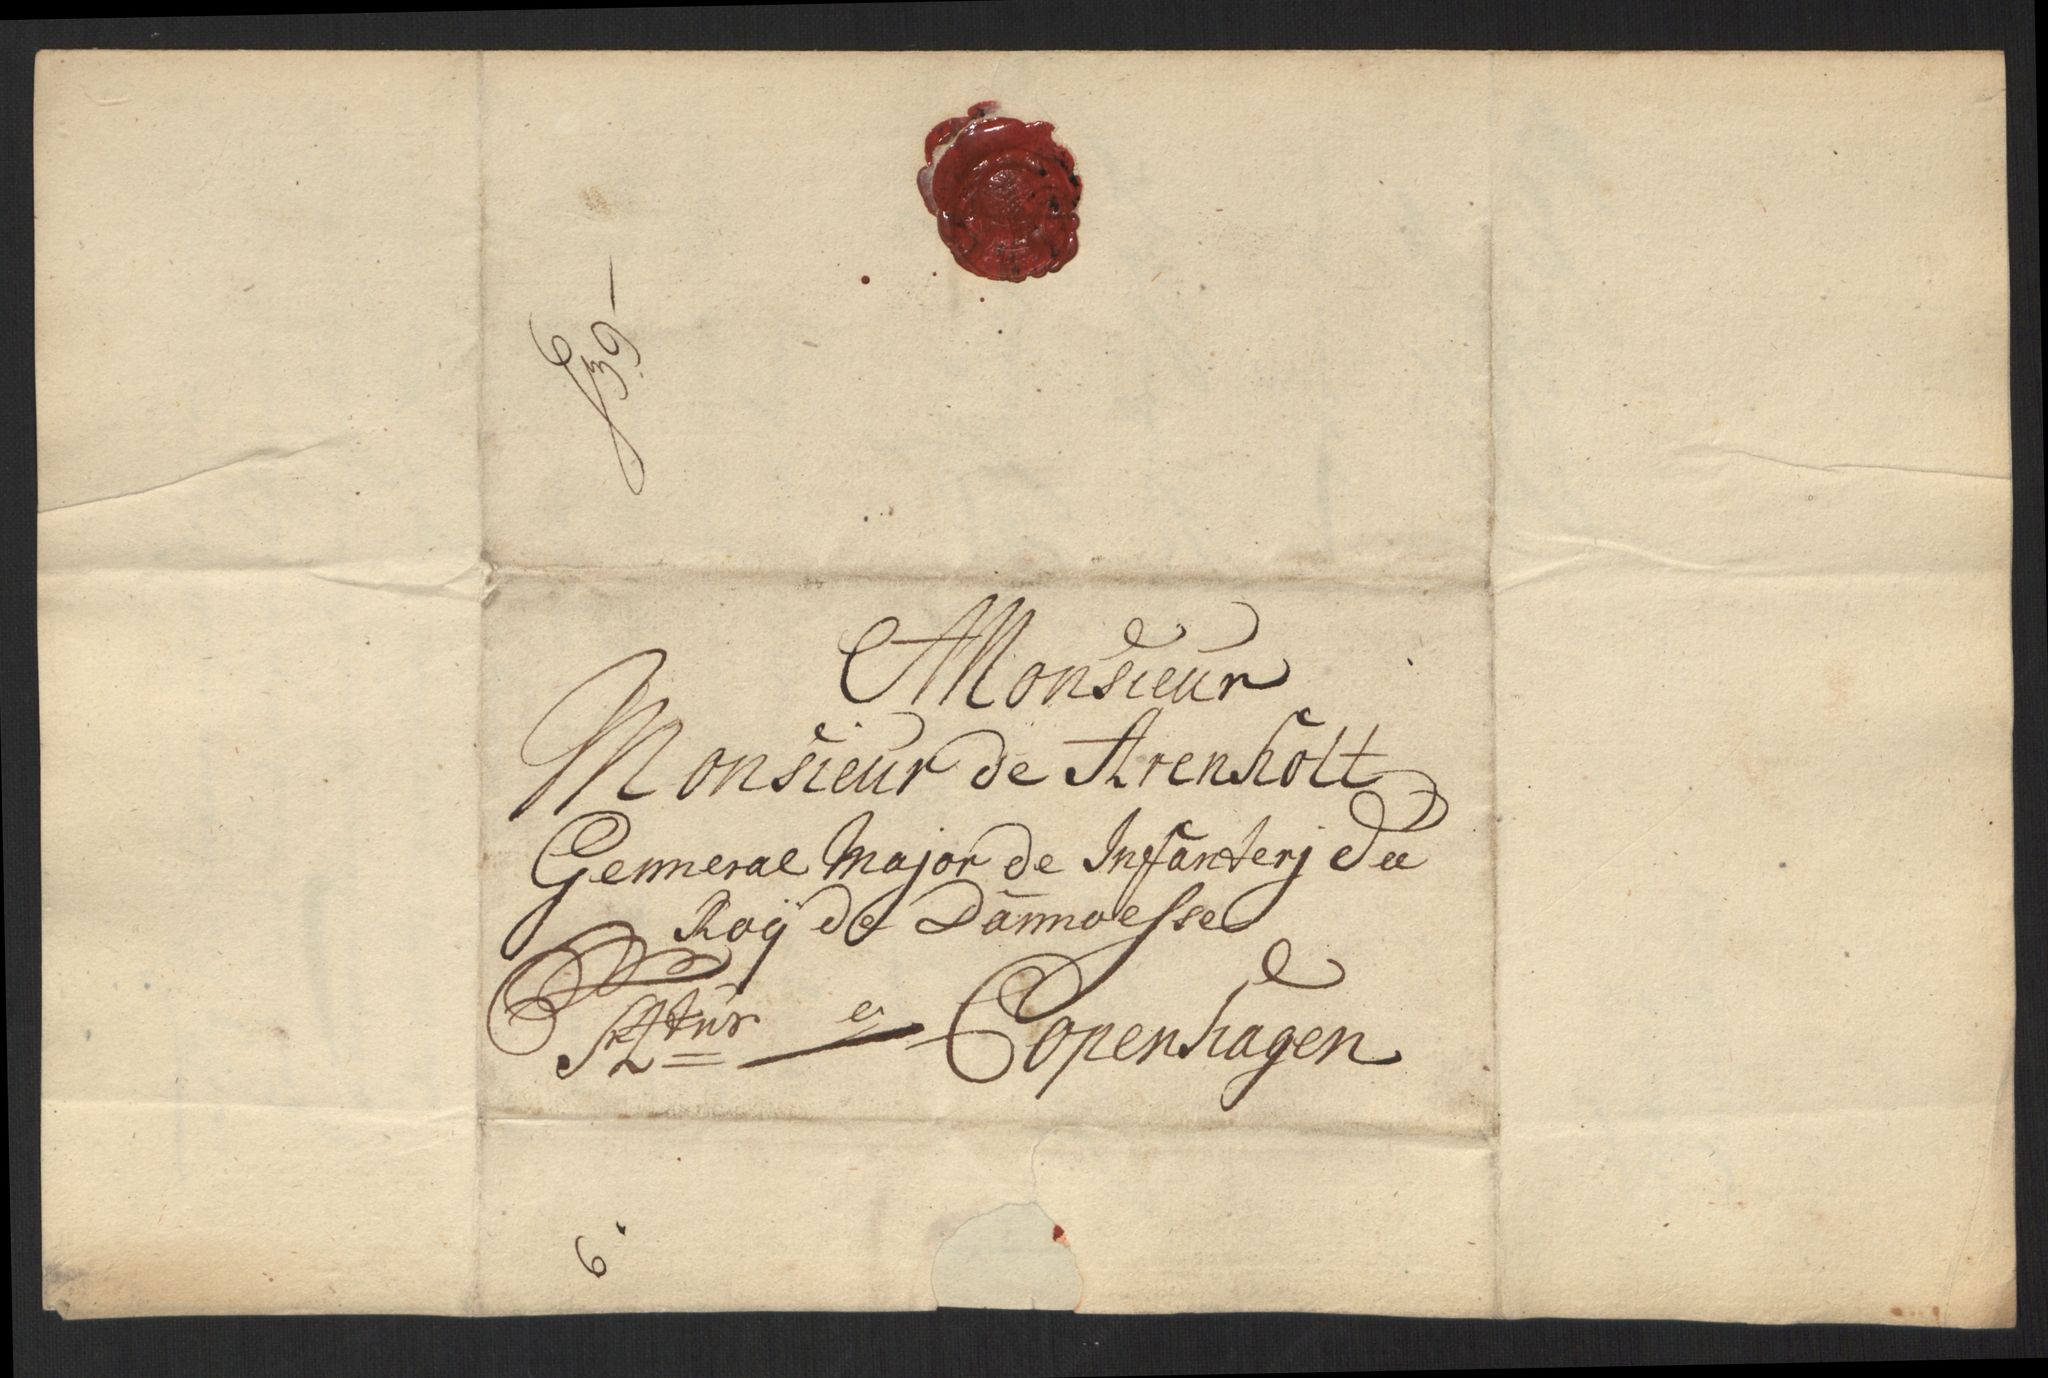 39
Monsieur
Monsieur de Arenholt
Genneral Major de Infanterj du
Roÿ de Dannoesse
a Copenhagen
6